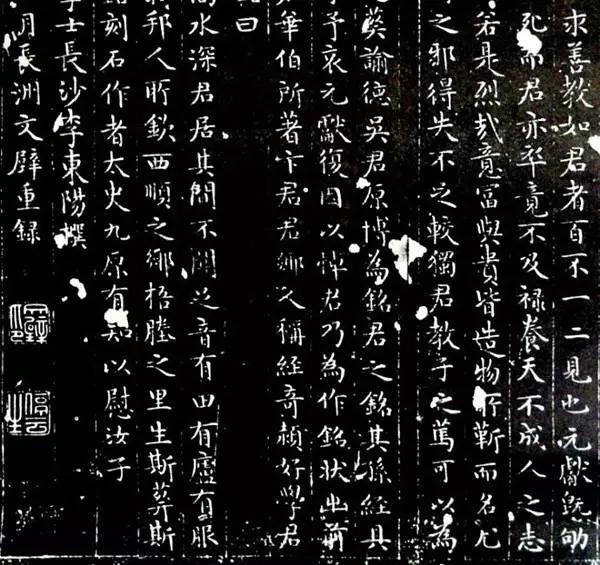 求善教如君者百不一二見也元獻既
死而君亦卒竟不及祿養天不成人之志
若是烈哉竟富與貴皆造物所靳而名尤
之邪得失不之較獨君教子之篤可以為
葵諭德吳君原博為銘君之銘其孫經其
予哀元獻復因以悼君乃為作銘狀出前
華伯所著卞君君鄉人稱經奇穎好學君
曰
水深君居其間不聞足音有田有廬有服
邦人所欽西順之鄉梧塍之里生斯葬斯
刻石作者太史九原有知以慰汝子
學士長沙李東陽撰
月長洲文壁重錄